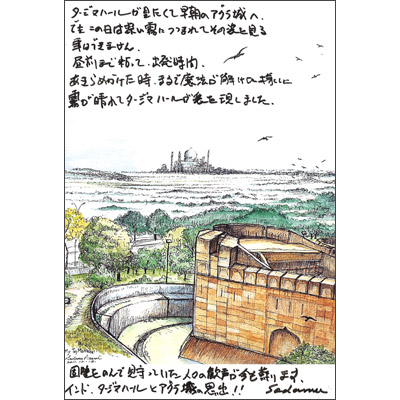 タージマハールが見たくて早朝のアグラ城へ、
でもこの日は深い霧につつまれてその姿を見る
事はできません。
昼前まで粘って、出発時間、
あきらめかけた時、まるで魔法が解けた様に
霧が晴れてタージマハールが姿を現しました。
固唾をのんで見守っていた人々の歓声が今も蘇ります、
インド、タージマハールとアグラ城の思出!! Sadamu